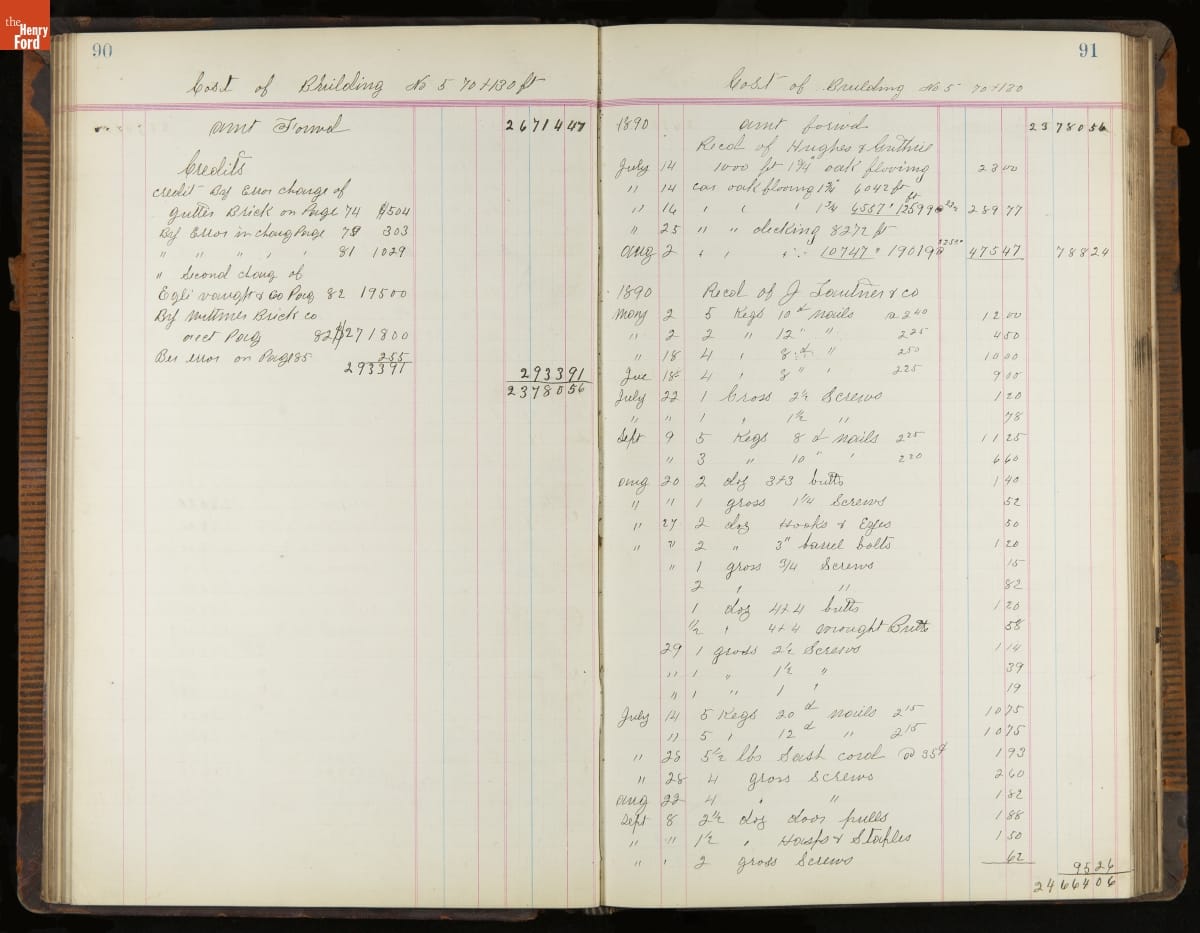 the
Henry
Ford
90
Cost of Building No 5 70+130 ft
amt Forwd 26714 47
Credits
credit By Error charge of
gutter Brick on Page 74 $504
By Error in charg Page 79 303
" " " " " 81 1029
" Second charg of
Egli vaught & Co Pag 82 19500
By Wittmer Brick co
acct Pag 82 $271800
Ber error on Page 85 255
293391 2933 91
23780 56
91
Cost of Building No 5 70+130
1890 amt forwd 23780 56
Recd of Hughes & Guthrie
July 14 1000 ft 1 3/4" oak flooring 23 00
" 14 car oak flooring 1 3/4" 6042 ft
" 16 " " " 1 3/4 6557" 12599 ft 289 77
" 25 " " decking 8272 ft
aug 2 " " " 10747" 19019 475 47 788 24
1890 Recd of J Lautner & co
May 2 5 Kegs 10 d nails a 240 12 00
" 2 2 " 12 " " 225 4 50
" 18 4 " 8 d " 250 10 00
Jue 18 4 " 8 " " 225 9 00
July 22 1 Gross 2 1/2 Screws 1 20
" " 1 " 1 1/2 " 78
Sept 9 5 Kegs 8 d nails 225 11 25
" 3 " 10 " " 220 6 60
aug 20 2 doz 3+3 butts 1 40
" " 1 gross 1 1/4 Screws 52
" 27 2 doz Hooks & Eyes 50
" " 2 " 3" barrel bolts 1 20
" 1 gross 3/4 Screws 15
2 " " 82
1 doz 4+4 butts 1 20
1/2 " 4+4 wrought Butts 58
29 1 gross 2 1/2 Screws 1 14
" 1 " 1 1/2 " 39
" 1 " 1 " 19
July 14 5 Kegs 20 d nails 2 15 10 75
" 5 " 12 d " 2 15 10 75
" 28 5 1/2 lbs Sash cord @ 35¢ 1 93
" 28 4 gross Screws 2 60
aug 22 4 " " 1 82
Sept 8 2 1/2 doz door pulls 1 88
" " 1 1/2 " Hasps & Staples 1 50
" " 2 gross Screws 62 95 26
24664 06